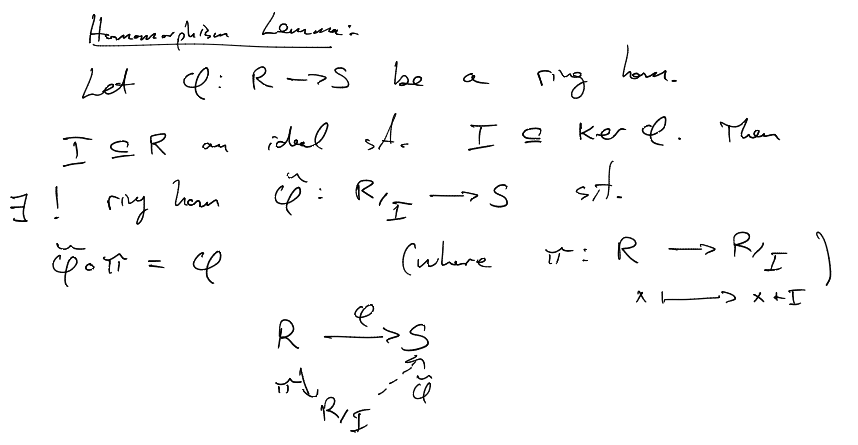 Homomorphism Lemma:
Let φ: R → S be a ring hom.
I ⊆ R an ideal s.t. I ⊆ ker φ. Then
∃ ! ring hom φ̃: R/I → S s.t.
φ̃∘π = φ (where π: R → R/I)
x ↦ x + I
R φ→ S
π R/I φ̃